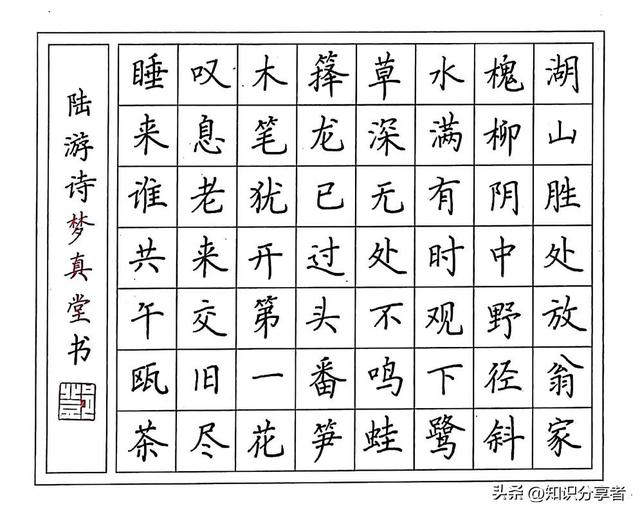 湖山胜处放翁家
槐柳阴中野径斜
水满有时观下鹭
草深无处不鸣蛙
箨龙已过头番笋
木笔犹开第一花
叹息老来交旧尽
睡来谁共午瓯茶
陆游诗梦真堂书
头条 @知识分享者